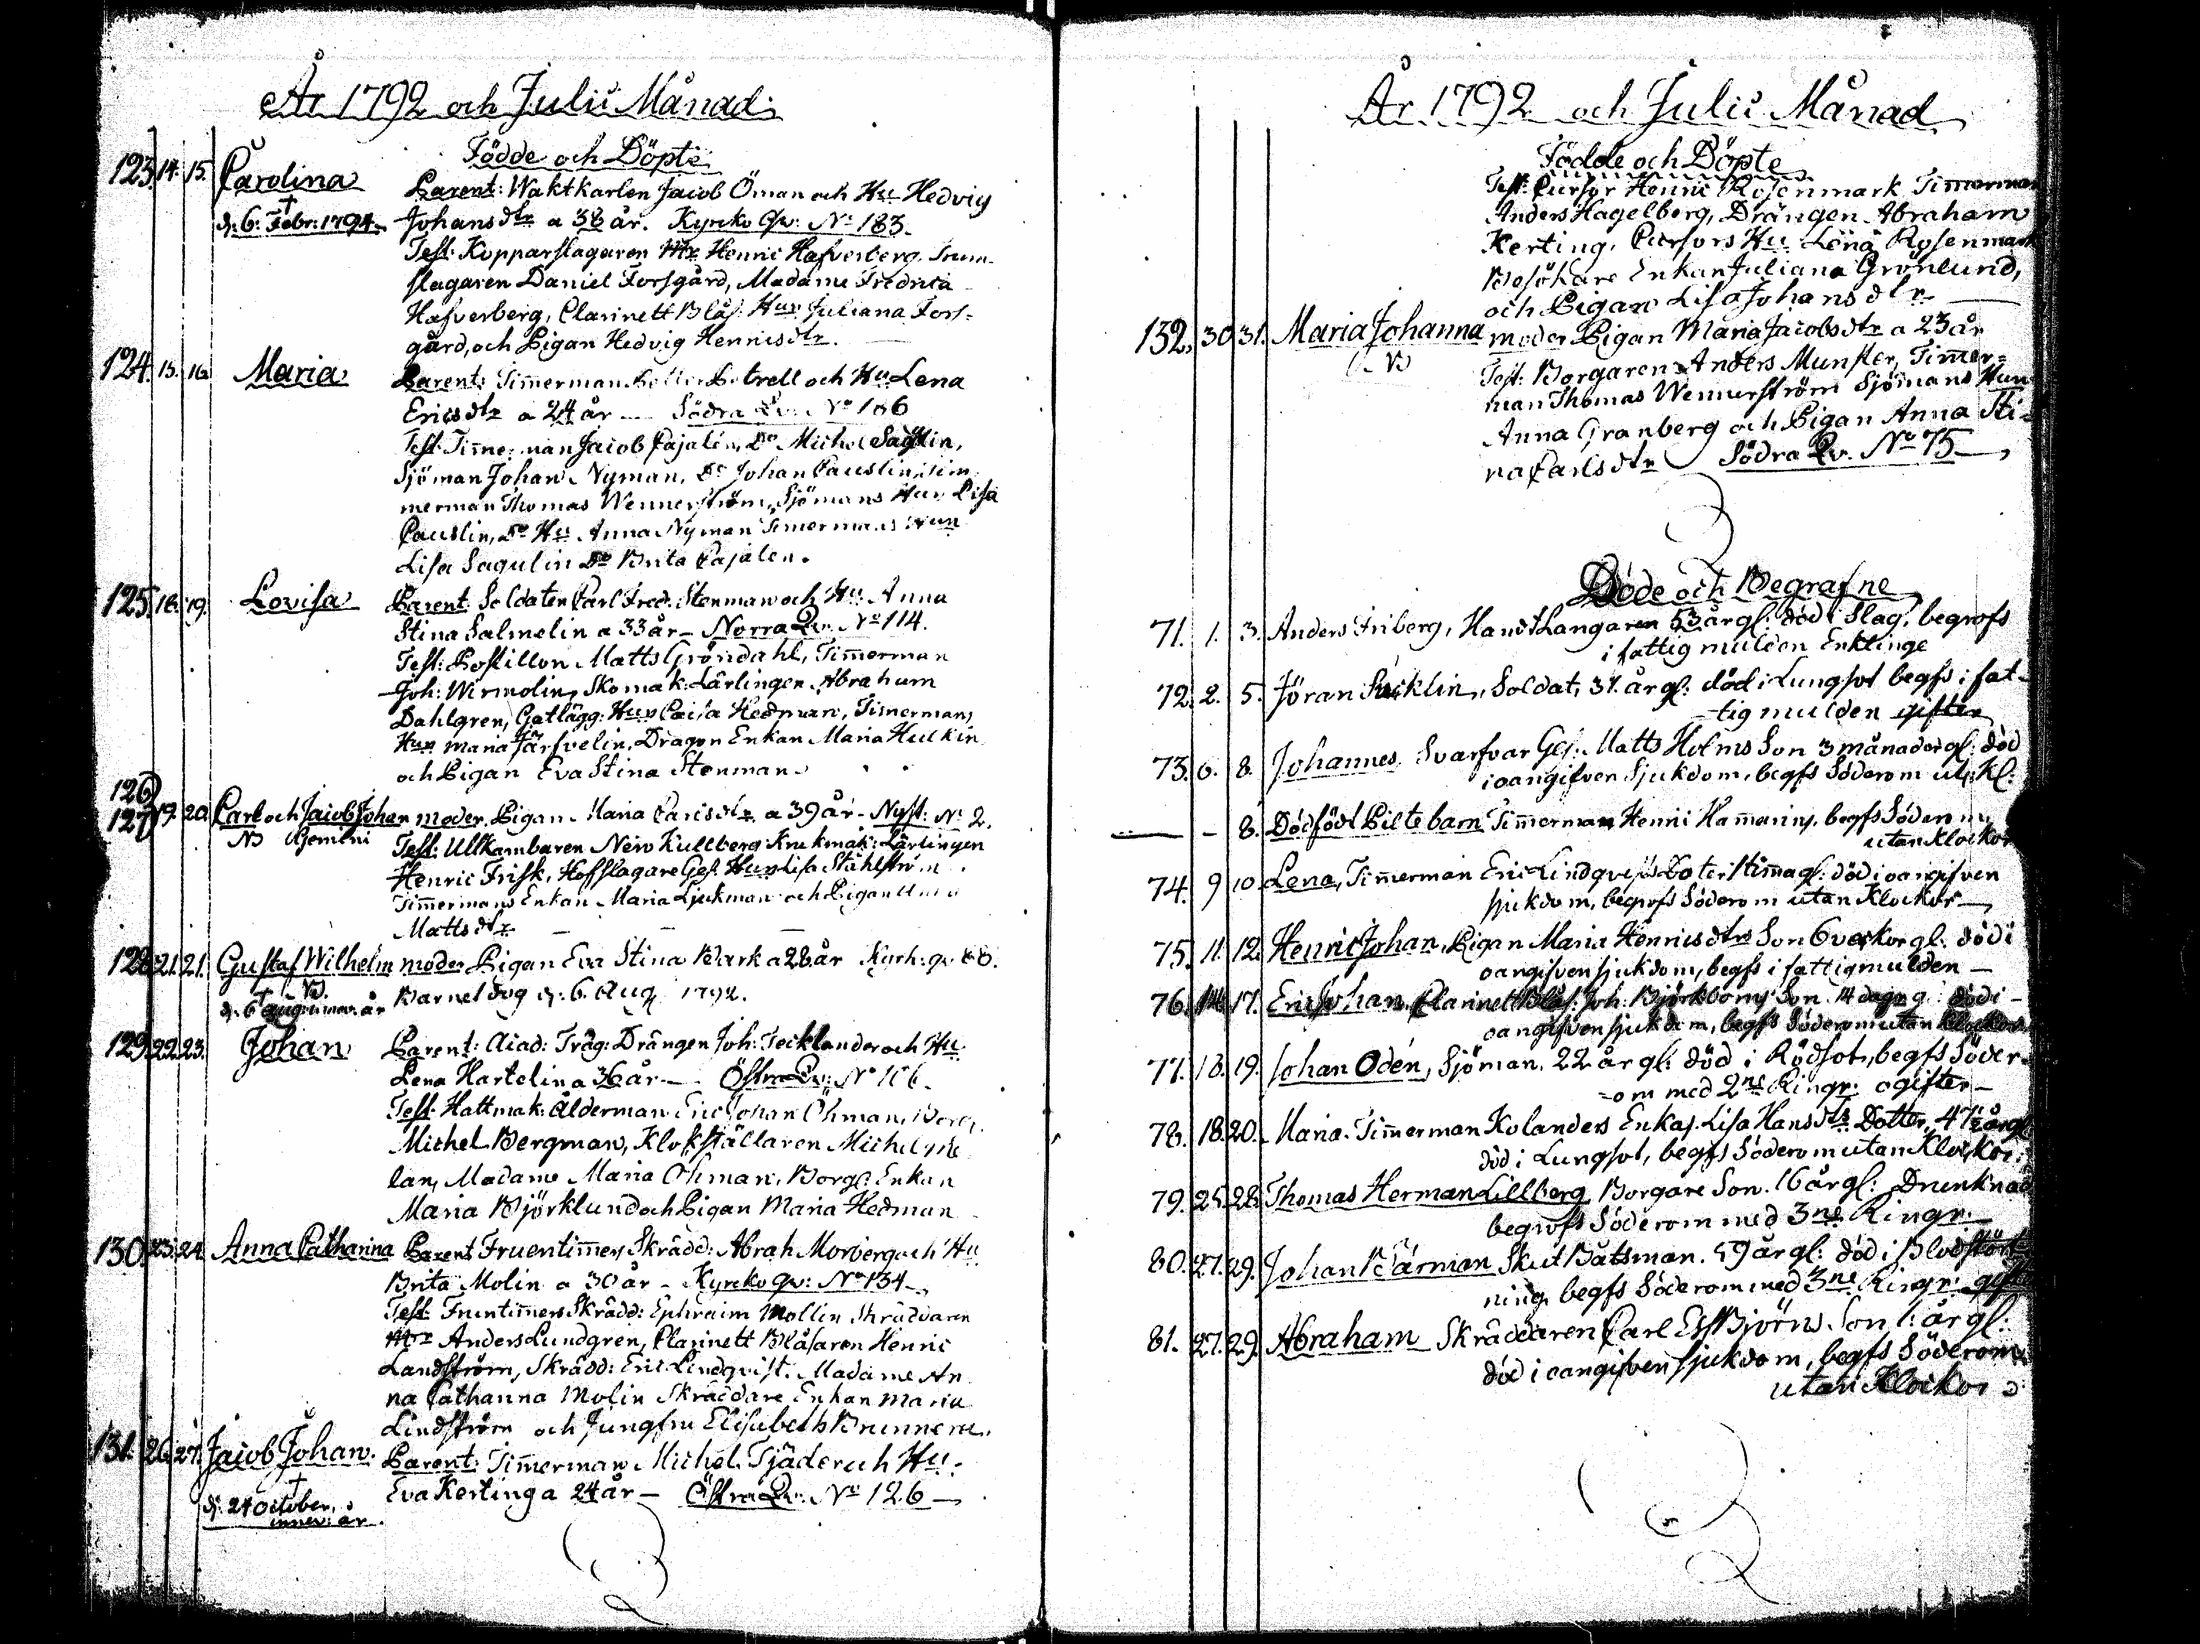 År 1792 och Julii Månad.
Födde och Döpte
123. 14. 15. Carolina Parent: Waktkarlen Jacob Öman och Hu Hedvig
† d: 6. Febr: 1794. Johansdtr a 38 år. Kyrko Qv: No 183.
Test: Kopparslagaren Mr Henric Hafverberg. Trum-
slagaren Daniel Forsgård, Madame Fredrica
Hafverberg, Clarinett Blås: Hun Juliana Fors-
gård, och Pigan Hedvig Henricsdtr.
124. 15. 16. Maria Parent: Timmerman Petter Petrell och Hu Lena
Ericsdtr a 24 år — Södra Qv: No 106
Test: Timmerman Jacob Cajalén, Do Michel Sagulin,
Sjöman Johan Nyman, Do Johan Pauslin, Tim-
merman Thomas Wennerström, Sjömans Hun Lisa
Pauslin, Do Hu Anna Nyman Timermans Hun
Lisa Sagulin Do Brita Cajalen.
125. 18. 19. Lovisa Parent: Soldaten Carl Fred: Stenman och Hu Anna
Stina Salmelin a 33 år — Norra Qv. No 114.
Test: Postillon Matts Gröndahl, Timmerman
Joh: Wirmolin, Skomak: Lärlingen Abraham
Dahlgren, Gatlägg: Hun Caisa Hedman, Timermans
Hun Maria Järfvelin, Dragon Enkan Maria Hulkin
och Pigan Eva Stina Stenman.
126
127 19. 20. Carl och Jacob Johan moder Pigan Maria Carlsdtr a 39 år — Nyst: No 2.
NB Gemini Test: Ullkambaren Kullberg Krukmak: Lärlingen
Henric Frisk, Hofslagare Ges: Hun Lisa Stählström
Timmermans Enkan Maria Ljukman och Pigan
Mattsdtr —
128. 21. 21. Gustaf Wilhelm moder Pigan Eva Stina Bark a 28 år Kyrk: qv:
NB. † d: 6 Aug: innev. år Barnet dog d: 6. Aug 1792.
129. 22. 23. Johan Parent: Acad: Träg: Drängen Joh: Tecklander och Hu
Lena Hartelin a 36 år — Östra Qv: No 106.
Test: Hattmak: Ålderman Eric Johan Öhman, Borg:
Michel Bergman, Klokställaren Michel
lan, Madame Maria Öhman, Borg: Enkan
Maria Björklund och Pigan Maria Hedman
130. 23. 24. Anna Catharina Parent Fruentimers Skrädd: Abrah Morberg och Hu
Brita Molin a 30 år — Kyrcko Qv: No 134 —
Test: Fruntimers Skrädd: Ephraim Mollin Skräddaren
Mr Anders Lundgren, Clarinett Blåsaren Henric
Landström, Skrädd: Eric Lindqvist. Madame An
na Catharina Molin Skräddare Enkan Maria
Lindström och Jungfru Elisabeth Brunnera.
131. 26. 27. Jacob Johan. Parent: Timmerman Michel Tjäder och Hu:
† d: 24 October, innev: år. Eva Kerting a 24 år — Östra Qv: No 126 —
År 1792 och Julii Månad
Födde och Döpte
Test: Cursor Henric Rosenmark Timmerman
Anders Hagelberg, Drängen Abraham
Kerting, Cursors Hu Lena Rosenmark
Besökare Enkan Juliana Grönlund,
och Pigan Lisa Johansdtr —
132. 30. 31. Maria Johanna moder Pigan Maria Jacobsdtr a 23 år
NB Test: Borgaren Anders Munster, Timmer-
man Thomas Wennerström Sjömans Hun
Anna Granberg och Pigan Anna Sti-
na Carlsdtr Södra Qv. No 75 —
Döde och Begrafne
71. 1. 3. Anders Friberg, Handtlangaren 53 år gl: död i Slag, begrofs
i fattig mulden Enklinge
72. 2. 5. Jöran Säcklin, Soldat, 31. år gl: död i Lungsot begfs i fat-
tig mulden gifter
73. 6. 8. Johannes, Svarfvar Ges: Matts Holms Son 3 månader gl: död
i oangifven Sjukdom, begfs Söderom ut: Kl:
— — 8. Dödfödt Piltebarn Timmerman Henric Hammarins, begfs Söderom,
utan Klockor
74. 9 10 Lena, Timmerman Eric Lindqvists Doter 1 timma gl: död i oangifven
sjukdom, begrofs Söderom utan Klockor —
75. 11. 12. Henric Johan, Pigan Maria Henricsdtrs Son 6 veckor gl: död i
oangifven sjukdom, begfs i fattigmulden —
76. 14. 17. Eric Johan, Clarinett Blås: Joh: Björkboms Son. 14 dagar g: död i —
oangifven sjukdom, begfs Söderom utan Klockor
77. 18. 19. Johan Odén, Sjöman. 22 år gl: död i Rödsot, begfs Söder-
om med 2ne Ringr: ogifter —
78. 18. 20. Maria. Timmerman Kolanders Enkas Lisa Hansdtrs Dotter, 4 1/2 år gl
död i Lungsot, begfs Söderom utan Klockor.
79. 25. 28. Thomas Herman Lillberg Borgare Son. 16 år gl: Drunknad
begrofs Söderom med 3ne Ringr. —
80. 27. 29. Johan Bärman Skut Båtsman. 59 år gl: död i Blodstört-
ning begfs Söderom med 3ne Ringr: gifter
81. 27. 29. Abraham Skräddaren Carl Es Björns Son 1: år gl:
död i oangifven sjukdom, begfs Söderom
utan Klockor